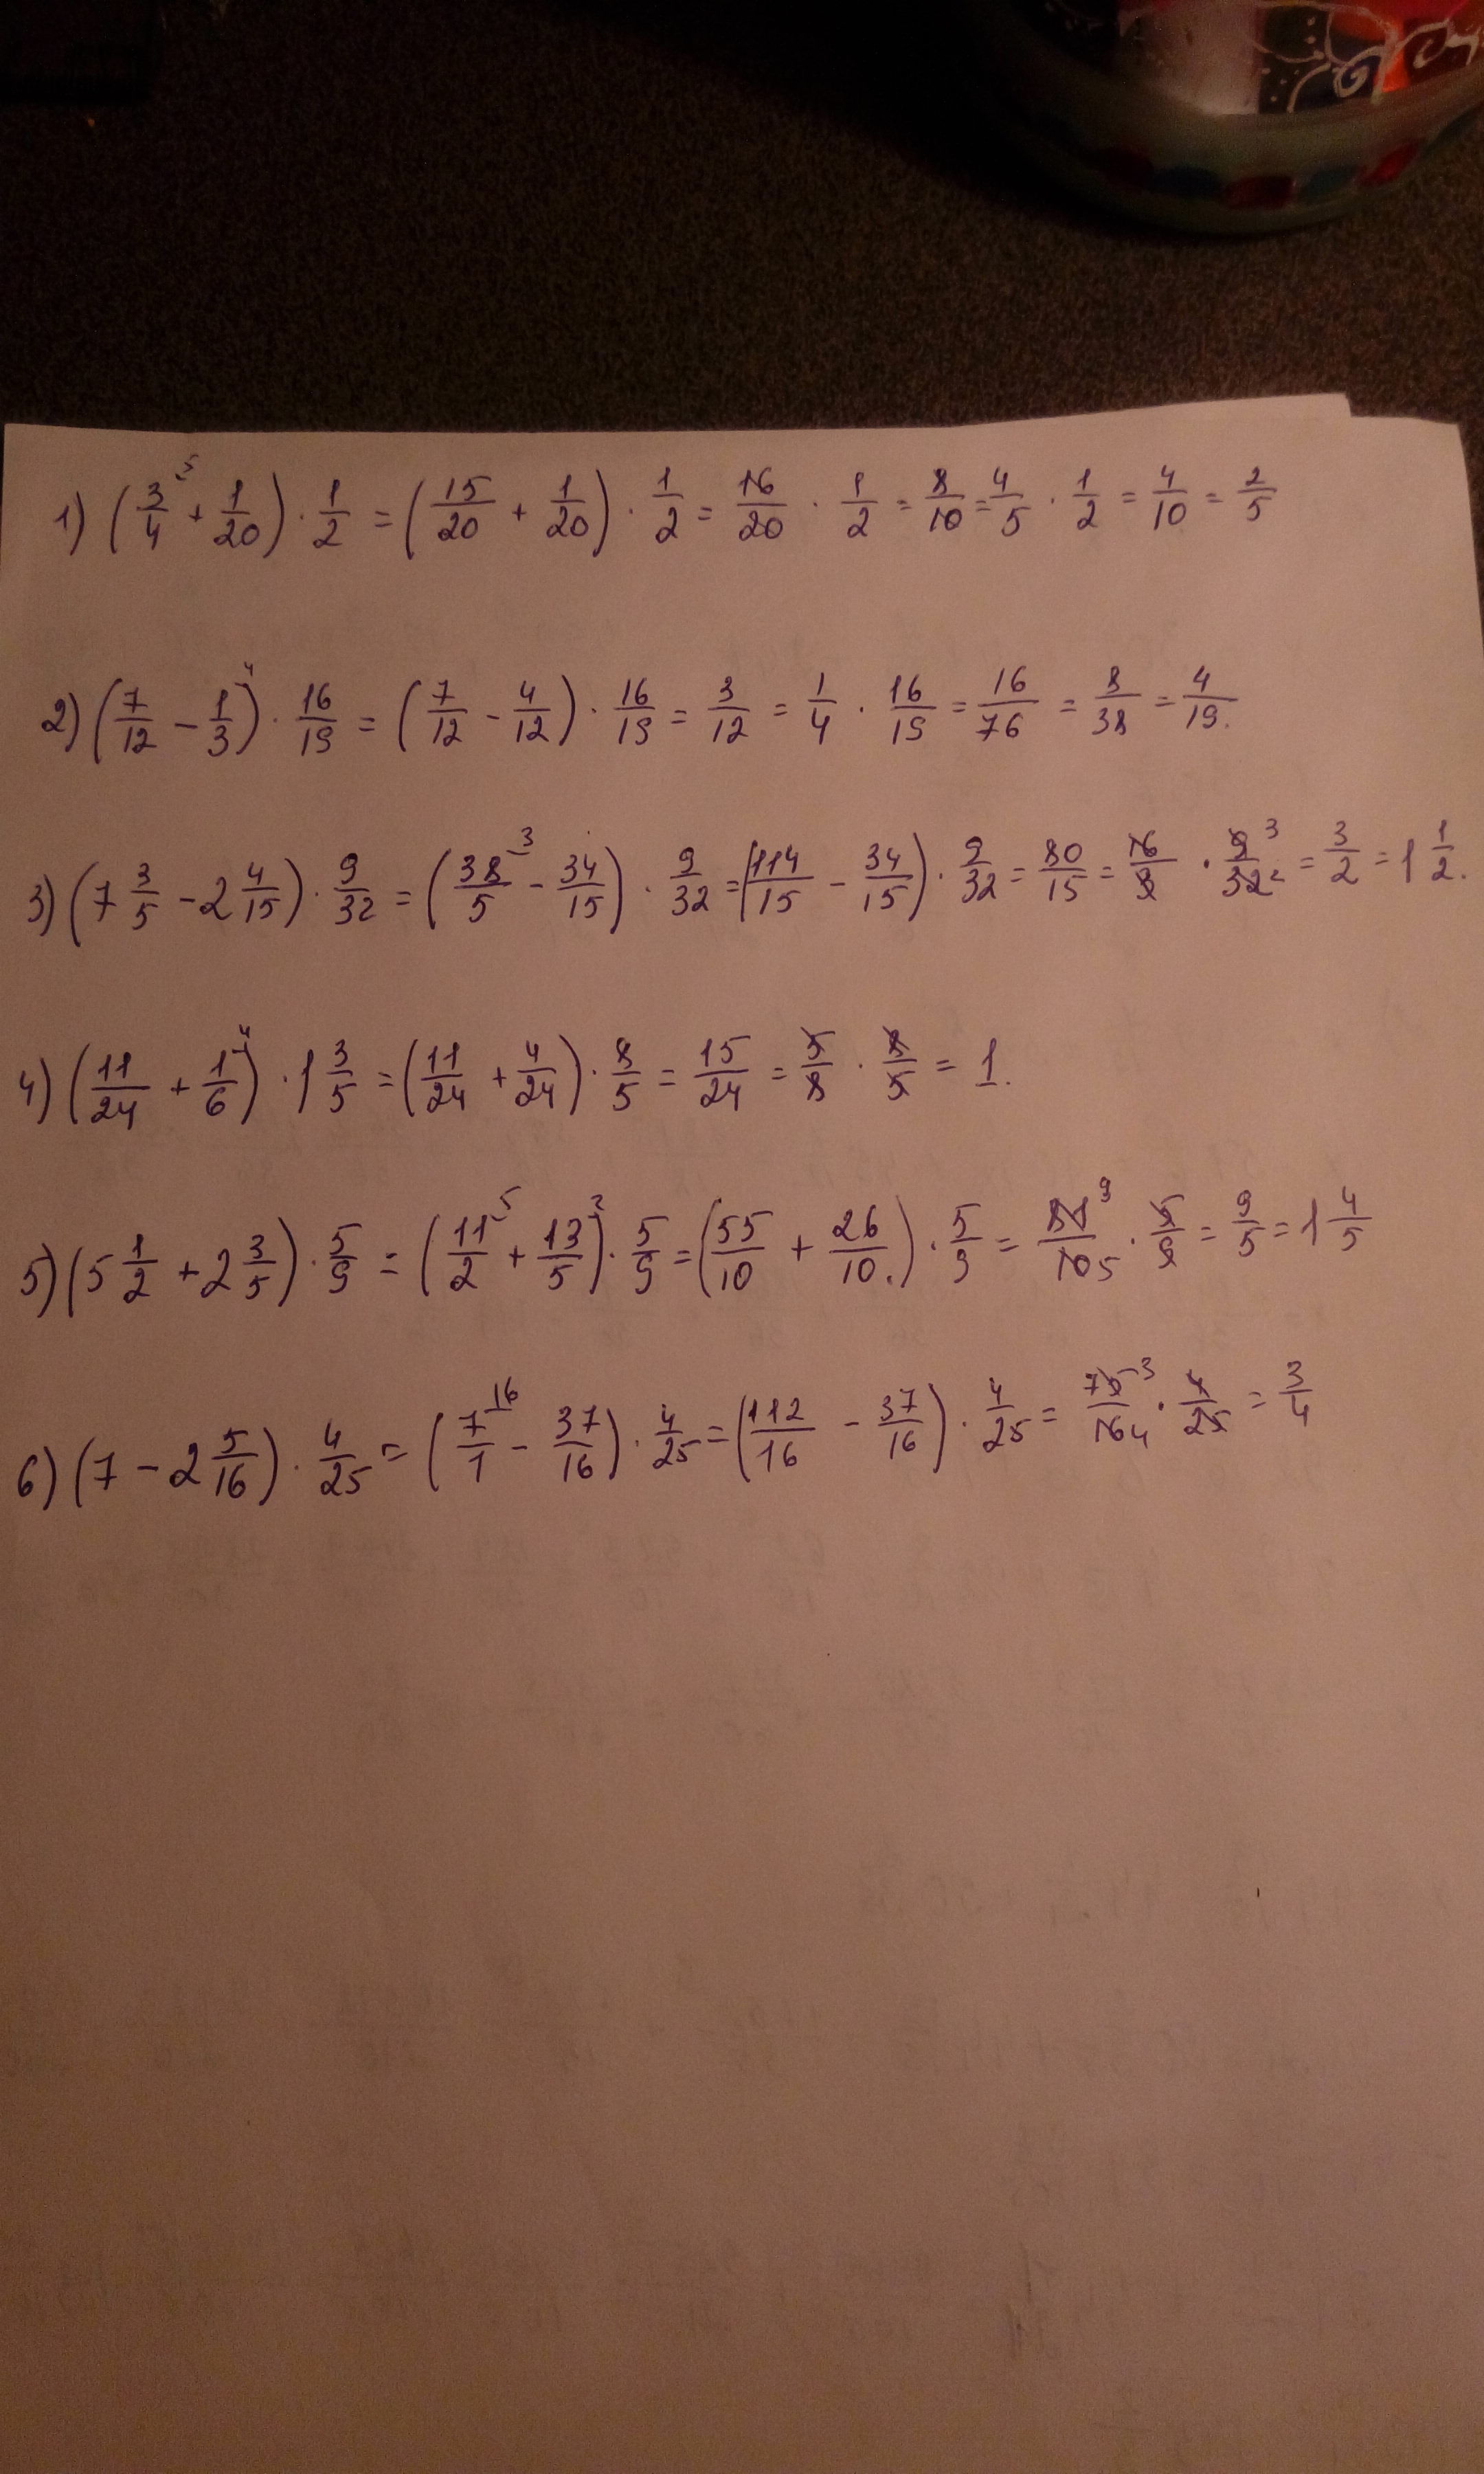 1) (3/4 ⁵ + 1/20) · 1/2 = (15/20 + 1/20) · 1/2 = 16/20 · 1/2 = 8/10 = 4/5 · 1/2 = 4/10 = 2/5
2) (7/12 − 1/3 ⁴) · 16/19 = (7/12 − 4/12) · 16/19 = 3/12 = 1/4 · 16/19 = 16/76 = 8/38 = 4/19.
3) (7 3/5 − 2 4/15) · 9/32 = (38/5 ³ − 34/15) · 9/32 = (114/15 − 34/15) · 9/32 = 80/15 = 16/3 · 9 ³/32 ₂ = 3/2 = 1 1/2.
4) (11/24 + 1/6 ⁴) · 1 3/5 = (11/24 + 4/24) · 8/5 = 15/24 = 5/8 · 8/5 = 1.
5) (5 1/2 + 2 3/5) · 5/9 = (11/2 ⁵ + 13/5 ²) · 5/9 = (55/10 + 26/10.) · 5/9 = 81 ⁹/10 5 · 5/9 = 9/5 = 1 4/5
6) (7 − 2 5/16) · 4/25 = (7/1 ¹⁶ − 37/16) · 4/25 = (112/16 − 37/16) · 4/25 = 75 ³/16 4 · 4/25 = 3/4